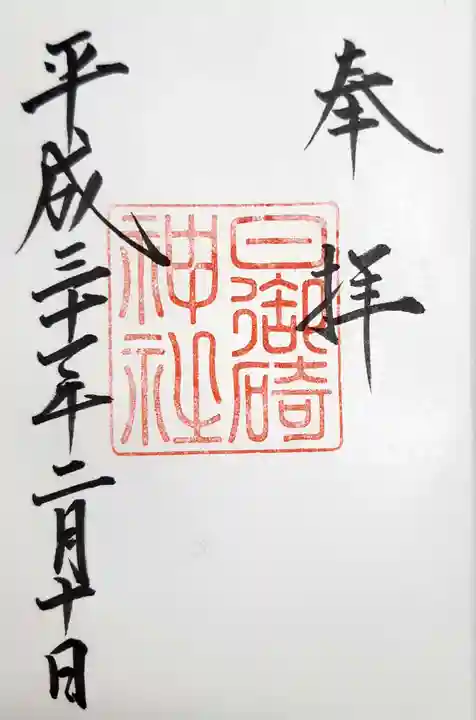 奉拝
日御碕
神社
平成三十一年二月十日